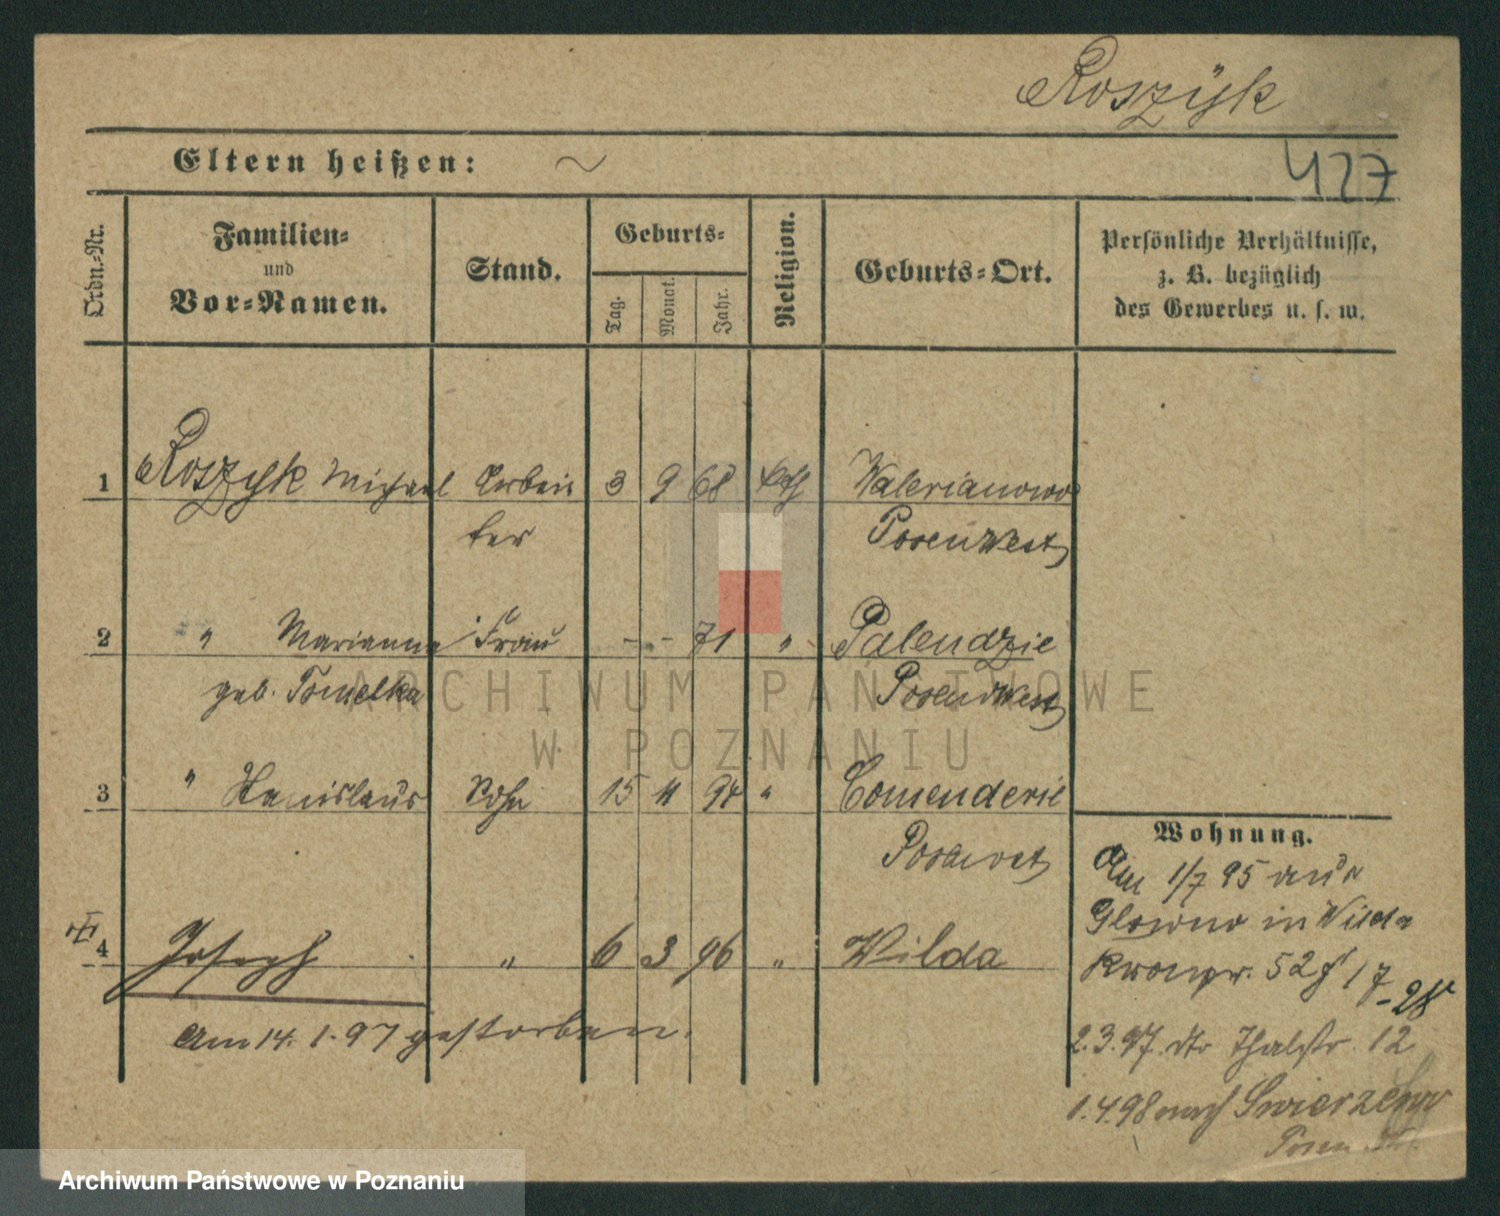 Roszÿk
Eltern heißen: ~
427
Ordn.-Nr.
Familien-
und
Vor-Namen.
Stand.
Geburts-
Tag.
Monat.
Jahr.
Religion.
Geburts-Ort.
Persönliche Verhältnisse,
z. B. bezüglich
des Gewerbes u. s. w.
1 Roszyk Michael Arbei 3 9 68 kth Walerianowo
ter Posen West
2 " Marianna Frau - - 71 " Palendzie
geb. Tomelka Posen West
3 " Stanislaus Sohn 15 11 94 " Comenderie
Posen ost
4 Joseph " 6 3 96 " Wilda
Am 14. 1. 97 gestorben.
Wohnung.
Am 1/7 95 aus
Glowno in Wilda
Kronpr. 52
2.3.97. dto Thalstr. 12
1.4.98 nach Swierzewo
Posen
ARCHIWUM PAŃSTWOWE
W POZNANIU
Archiwum Państwowe w Poznaniu